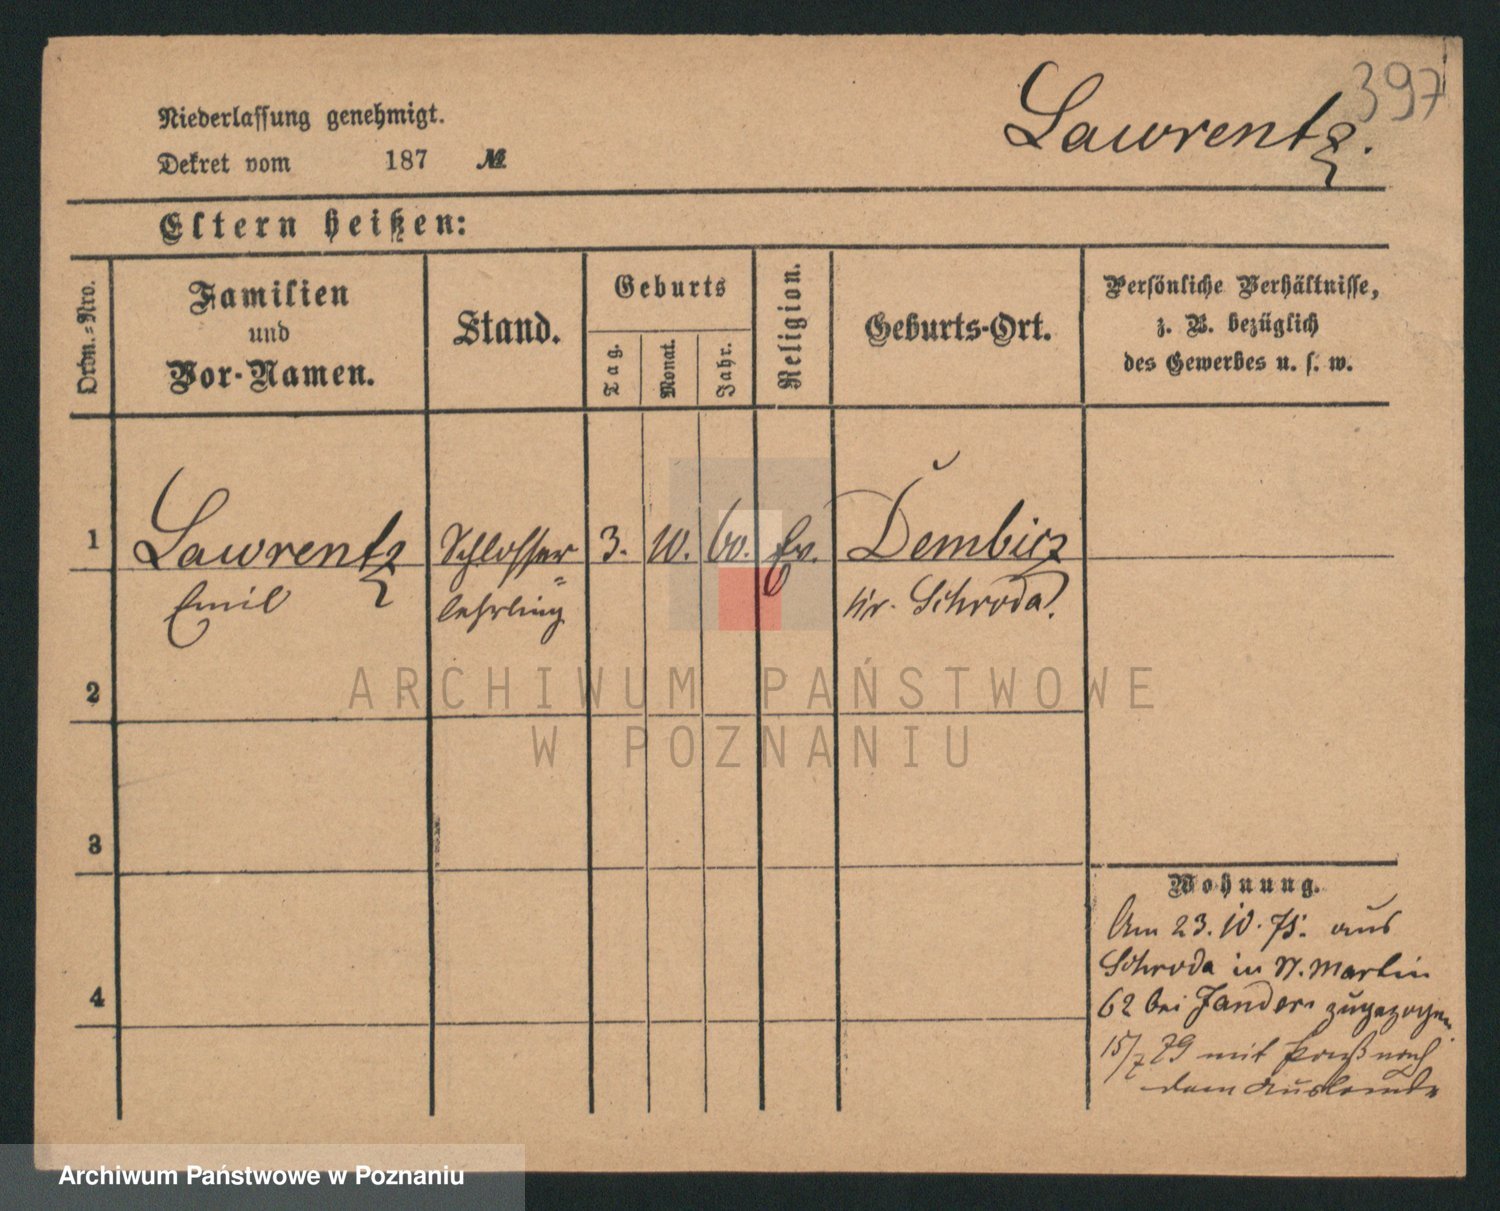 397
Lawrentz.
Niederlassung genehmigt.
Dekret vom 187 №
Eltern heißen:
Ordn.-Nro.
Familien
und
Vor-Namen.
Stand.
Geburts
Tag.
Monat.
Jahr.
Religion.
Geburts-Ort.
Persönliche Verhältnisse,
z. B. bezüglich
des Gewerbes u. s. w.
1 Lawrentz Schlosser= 3. 10. 60. Ev. Dembicz
Emil lehrling Kr. Schroda.
2
3
4
Wohnung.
Am 23.10.75. aus
Schroda in St. Martin
62 bei Janders zugezogen.
15/7 79 mit Paß nach
dem Auslande
ARCHIWUM PAŃSTWOWE
W POZNANIU
Archiwum Państwowe w Poznaniu